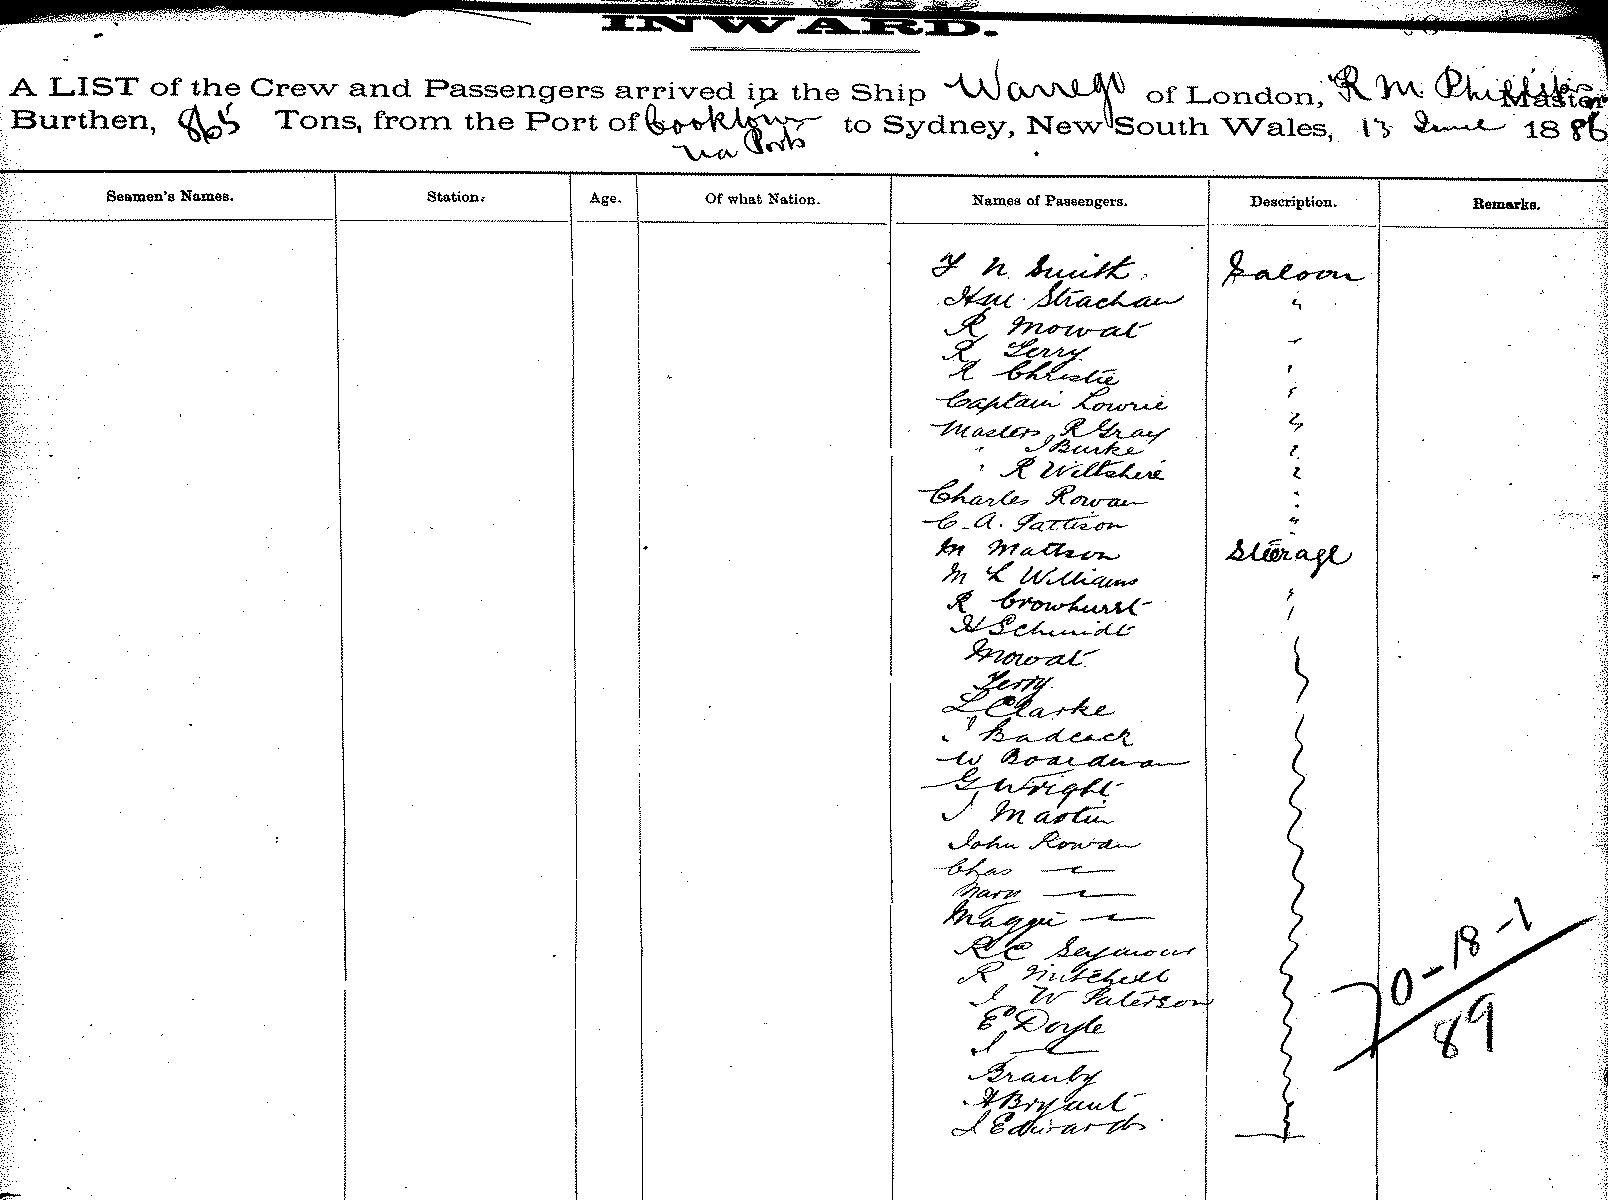 INWARD.
A LIST of the Crew and Passengers arrived in the Ship Warrego of London, R M. Phillips Master
Burthen, 865 Tons, from the Port of Cooktown to Sydney, New South Wales, 13 June 1886
via Ports
Seamen's Names. Station. Age. Of what Nation. Names of Passengers. Description. Remarks.
F N Smith Saloon
HM Strachan "
R Mowat "
R Terry "
R Christie "
Captain Lowrie "
Masters R Gray "
" J Burke "
" R Wiltshire "
Charles Rowan "
C. A. Pattison "
M Mattson Steerage
M L Williams "
R Crowhurst
H Schmidt
Mowat
Terry
L Clarke
J Badcock
W Boardman
G Wright
J Martin
John Rowan
Chas "
Mary "
Maggie "
R C Seymour
R Mitchell
J W Paterson
E Doyle
J "
Branby
A Bryant
J Edwards
70-18-1
89